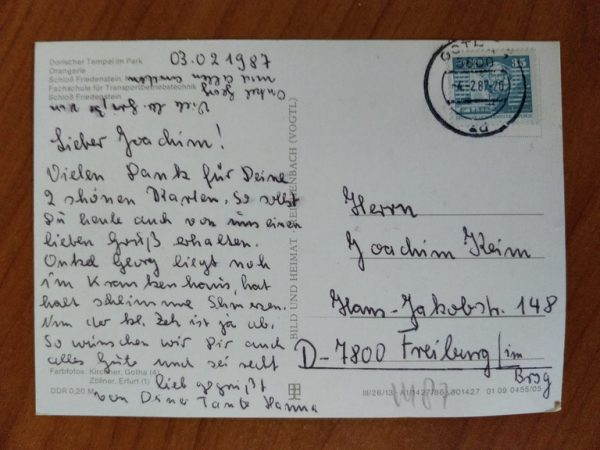 03.02.1987
Dorischer Tempel im Park
Orangerie
Schloß Friedenstein,
Fachschule für Transportbetriebstechnik
Schloß Friedenstein
Viele Grüße von
Onkel Georg
und allen anderen
Lieber Joachim!
Vielen Dank für Deine
2 schönen Karten. So sollst
Du heute auch von uns einen
lieben Gruß erhalten.
Onkel Georg liegt noch
im Krankenhaus, hat
halt schlimme Schmerzen.
Nun der kl. Zeh ist ja ab.
So wünschen wir Dir auch
alles Gute und sei recht
lieb gegrüßt
von Deiner Tante Hanna
Farbfotos: Kirchner, Gotha (4)
Zöllner, Erfurt (1)
DDR 0,20 M
BILD UND HEIMAT REICHENBACH (VOGTL)
GOTHA
5800
35
Herrn
Joachim Keim
Hans-Jakobstr. 148
D-7800 Freiburg/im
Brsg
III/26/13 01 09 0455/05